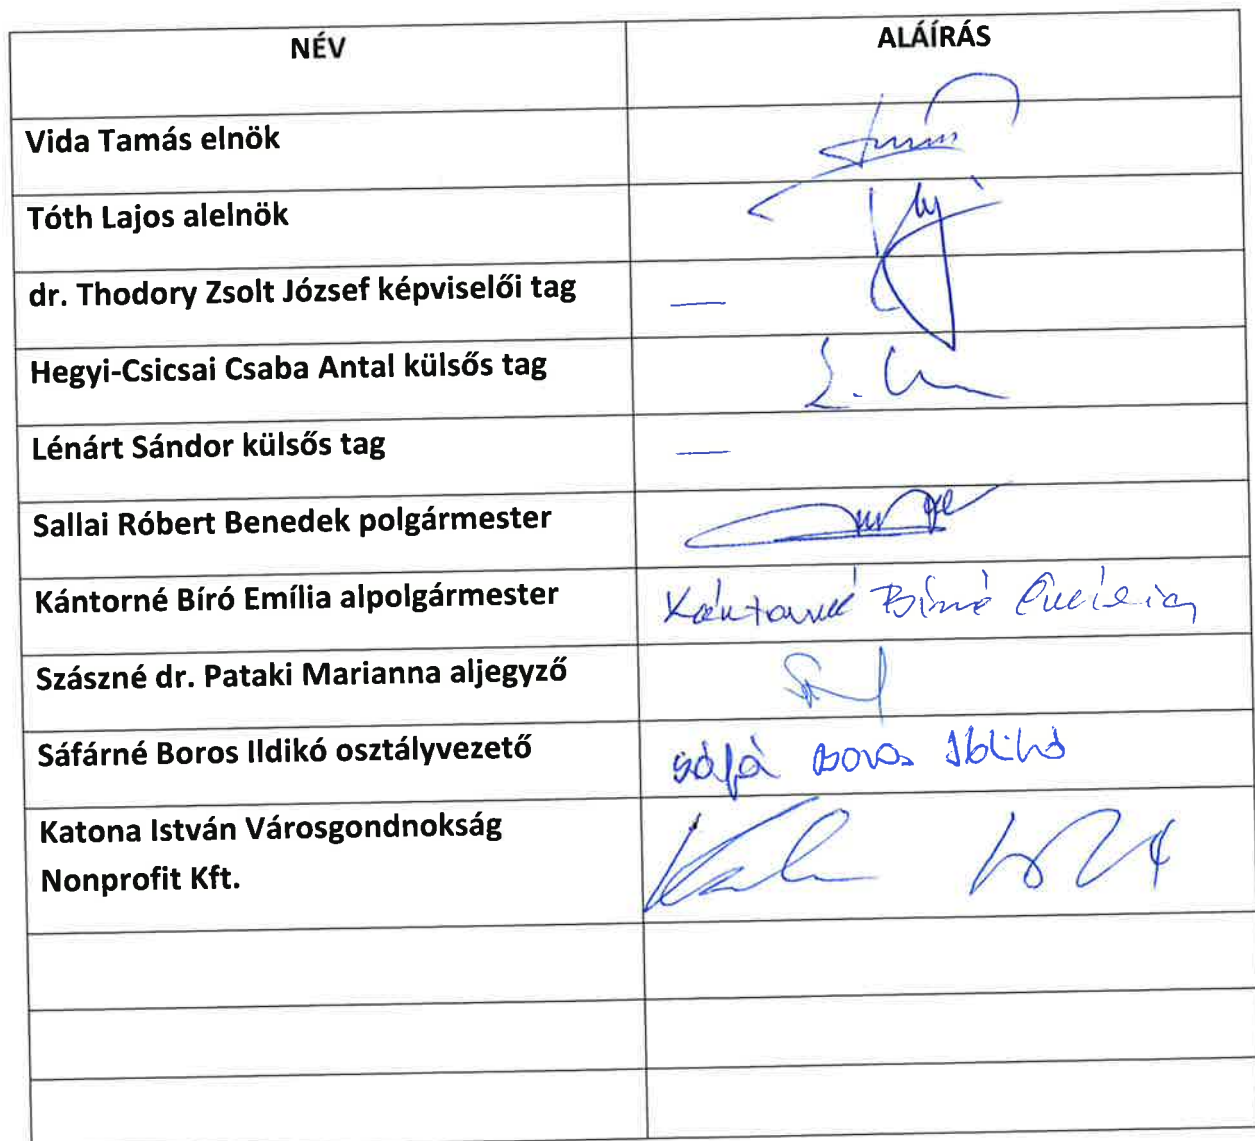 NÉV
ALÁÍRÁS
Vida Tamás elnök
Tóth Lajos alelnök
dr. Thodory Zsolt József képviselői tag
—
Hegyi-Csicsai Csaba Antal külsős tag
Lénárt Sándor külsős tag
—
Sallai Róbert Benedek polgármester
Kántorné Bíró Emília alpolgármester
Kántorné Bíróné Emília
Szászné dr. Pataki Marianna aljegyző
Sáfárné Boros Ildikó osztályvezető
Boros Ildikó
Katona István Városgondnokság
Nonprofit Kft.